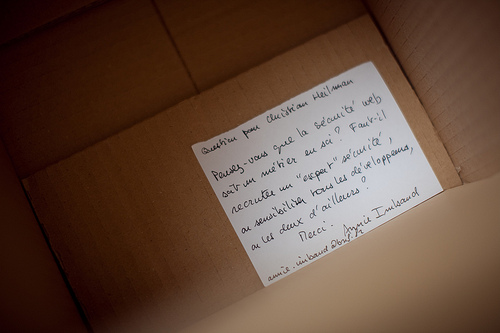 Question pour Christian Heilman
Pensez-vous que la sécurité web
soit un métier en soi ? Faut-il
recruter un "expert" sécurité,
ou sensibiliser tous les développeurs,
ou les deux d'ailleurs ?
Merci. Annie